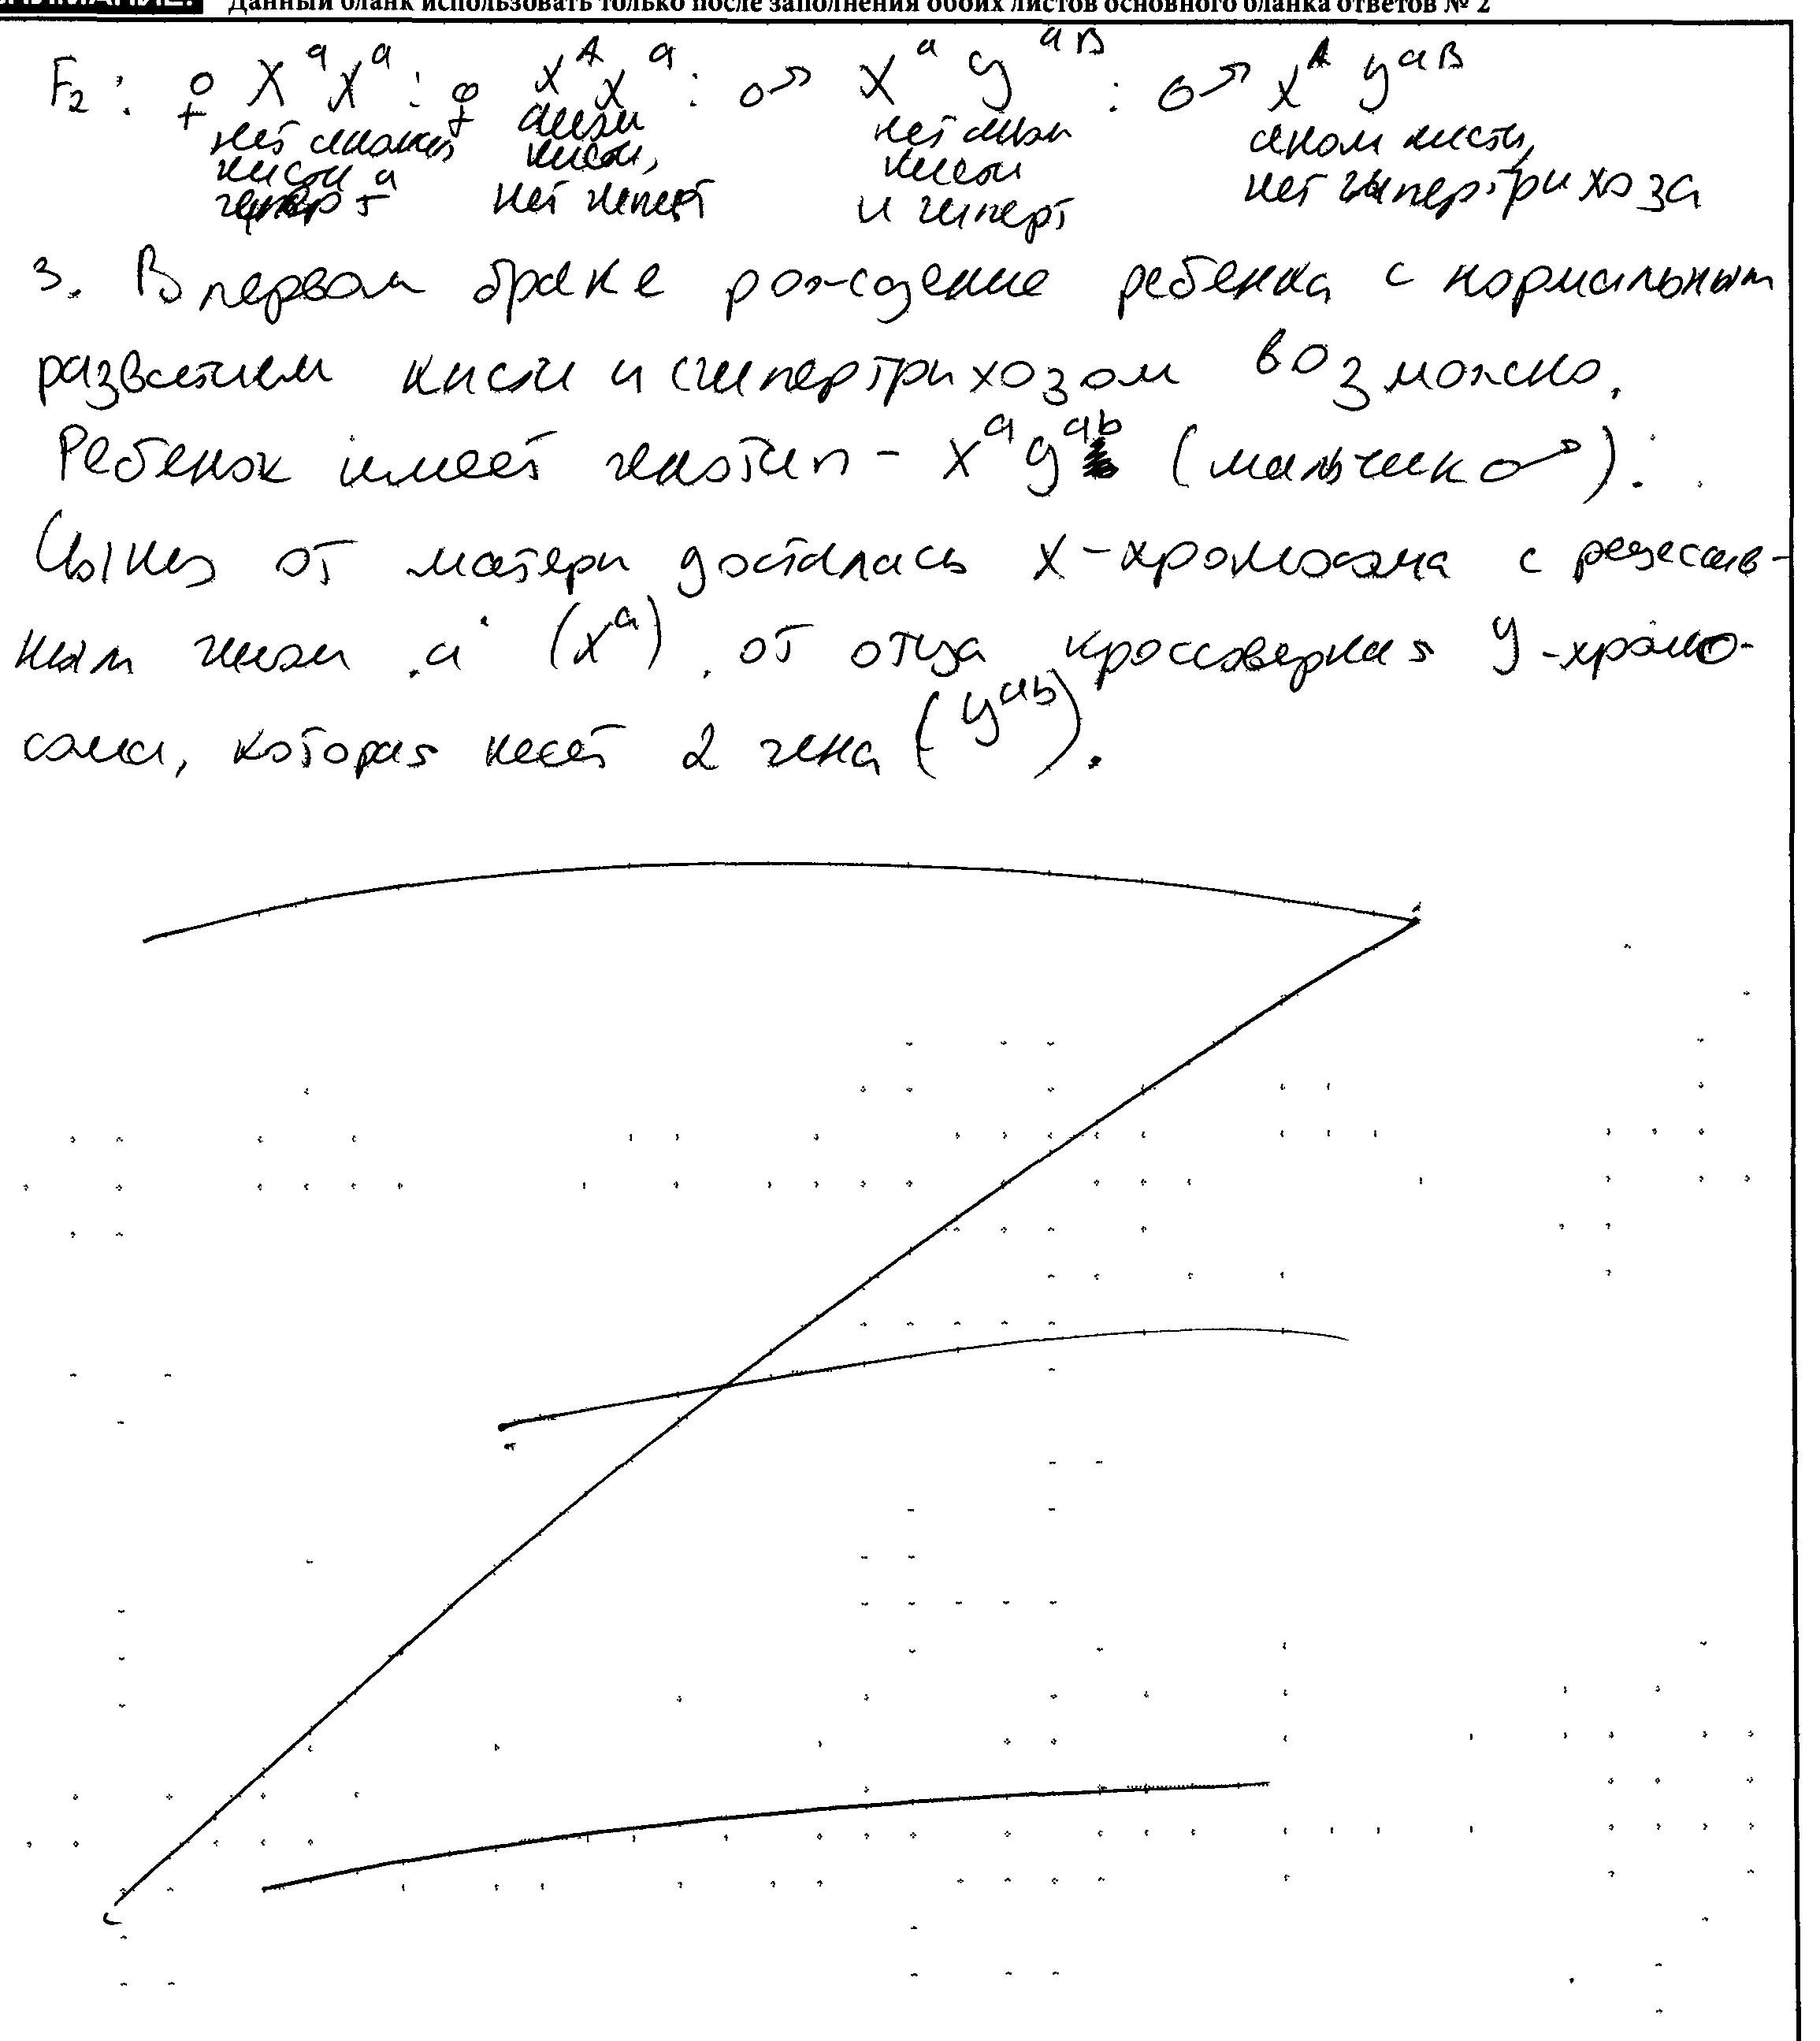 ВНИМАНИЕ! Данный бланк использовать только после заполнения обоих листов основного бланка ответов № 2
F₂: ♀ XᵃXᵃ : ♀ XᴬXᵃ : ♂ XᵃYᵃᴮ : ♂ XᴬYᵃᴮ
нет аномал кисти, нет аном аном кисти,
кисти и кисти нет гипертрихоза
нет гиперт и гиперт
3. В первом браке рождение ребенка с нормальным
развитием кисти и с гипертрихозом возможно.
Ребенок имеет генотип - XᵃYᵃᵇ (мальчик ♂).
от матери досталась X-хромосома с рецессив-
ным геном а (Xᵃ), от отца кроссоверная Y-хромо-
сома, которая несет 2 гена (Yᵃᵇ).